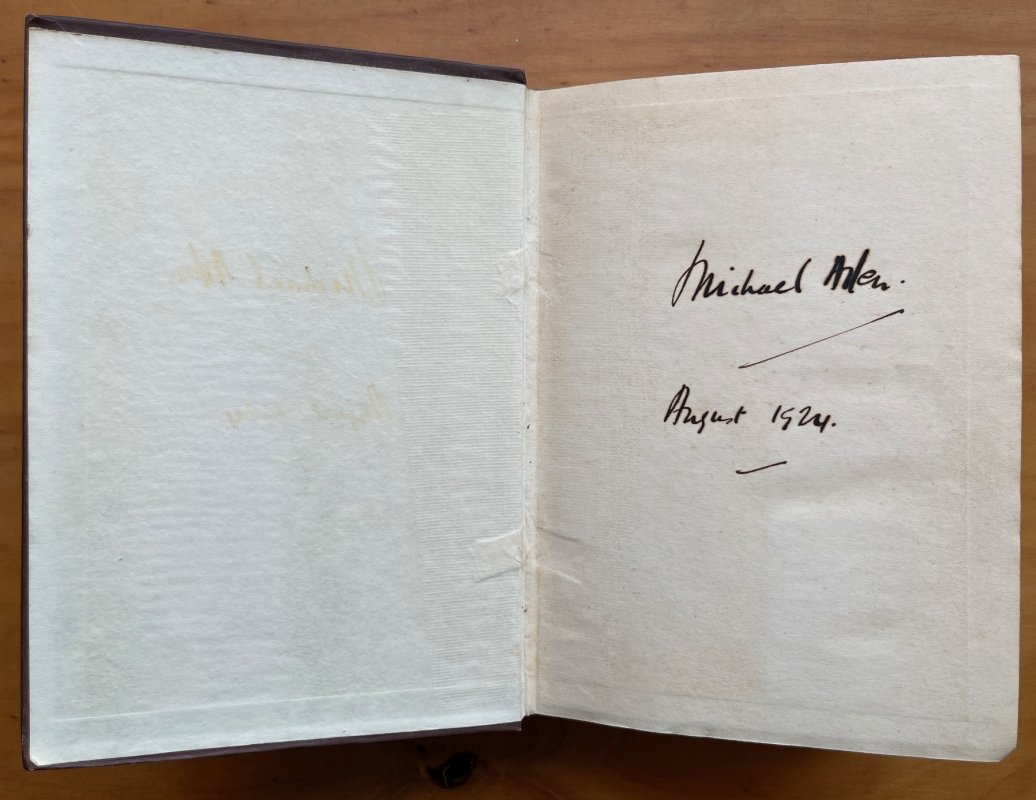 Michael Arlen.
August 1924.